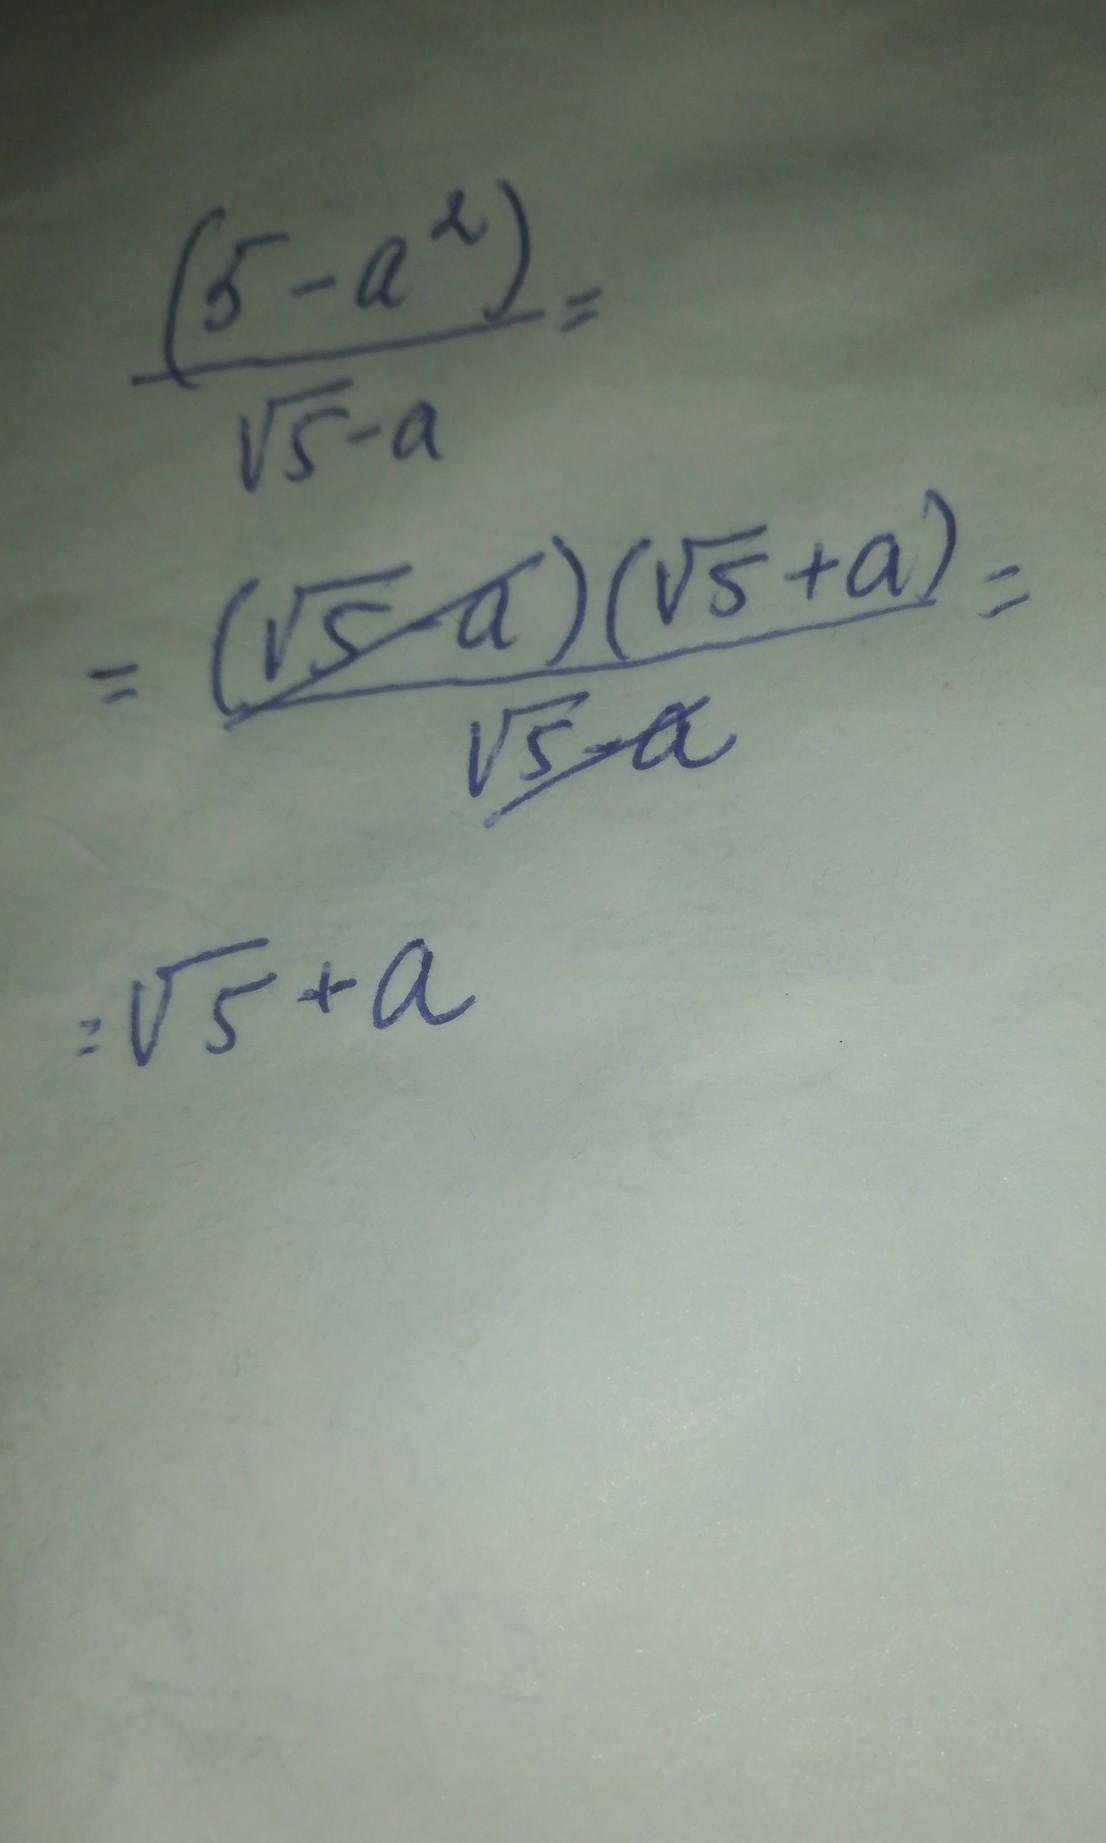 (5-a²)/(√5-a) =
= (√5-a)(√5+a)/(√5-a) =
= √5+a